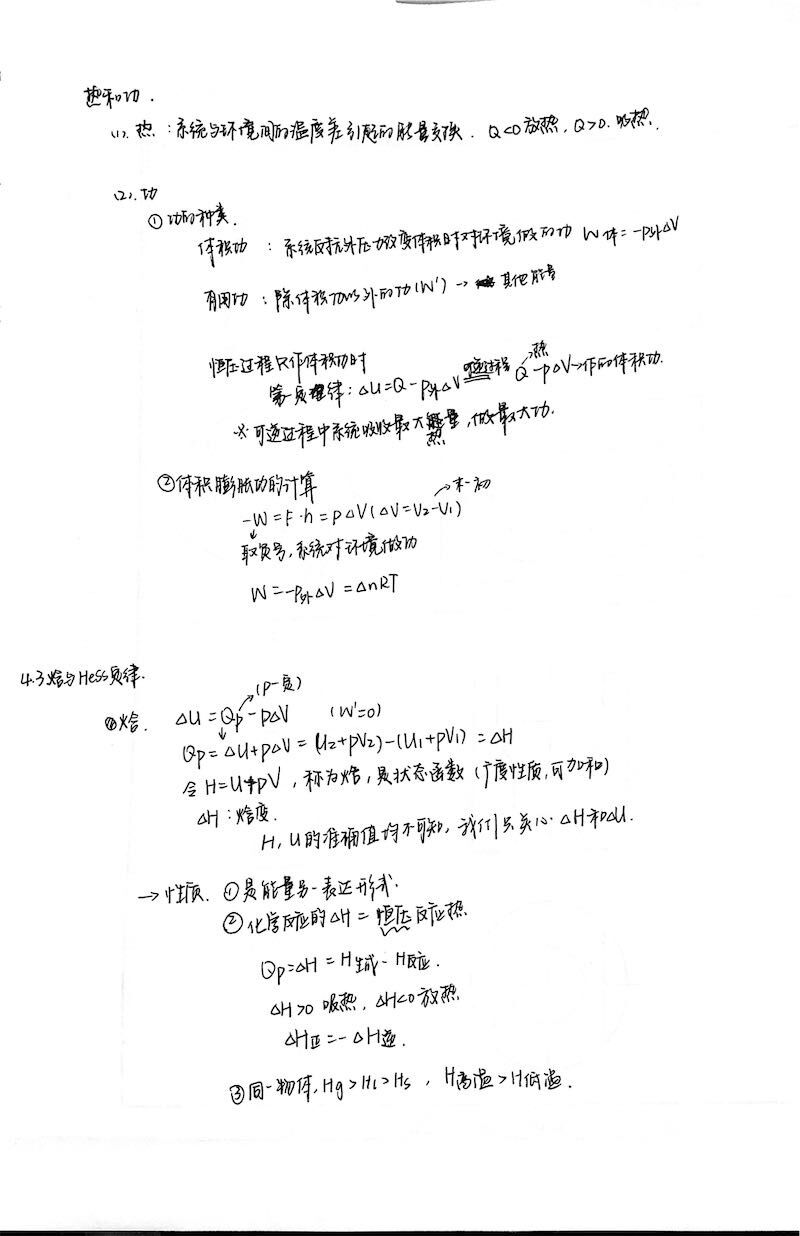 热和功.
(1). 热：系统与环境间的温度差引起的能量交换. Q<0放热, Q>0. 吸热.
(2). 功
①功的种类.
体积功：系统反抗外压力改变体积时对环境做的功 W体=-P外ΔV
有用功：除体积功以外的功(W')→其他能量
恒压过程只作体积功时
→热
第一定律: ΔU=Q-P外ΔV 可逆过程 Q-pΔV→作的体积功.
※可逆过程中系统吸收最大热量,做最大功.
②体积膨胀功的计算
→末-初
-W=F·h=pΔV(ΔV=V2-V1)
取负号,系统对环境做功
W=-P外ΔV=ΔnRT
4.3 焓与Hess定律.
(P一定)
①焓. ΔU=Qp-pΔV (W'=0)
Qp=ΔU+pΔV=(U2+pV2)-(U1+pV1)=ΔH
令H=U+pV, 称为焓, 是状态函数(广度性质,可加和)
ΔH:焓变.
H, U的准确值均不可知, 我们只关心ΔH和ΔU.
→性质. ①是能量另一表达形式.
②化学反应的ΔH=恒压反应热
Qp=ΔH=H生成-H反应.
ΔH>0 吸热, ΔH<0放热
ΔH正=-ΔH逆.
③同一物体, Hg>Hl>Hs, H高温>H低温.